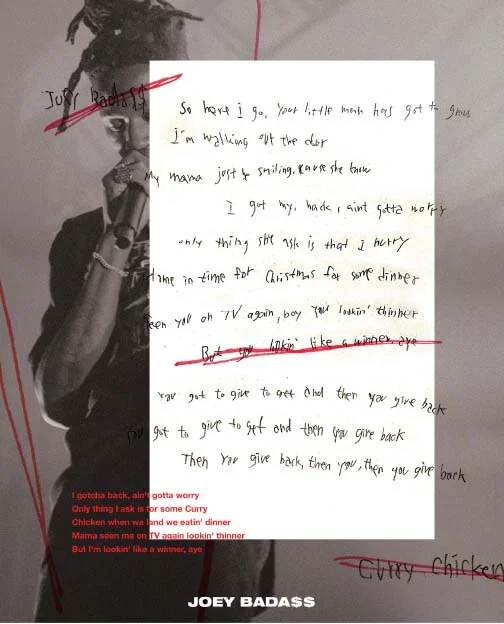 Joey Bada$$
So here i go, your little man has got to grow
I'm walking out the door
My mama just be smiling, cause she know
I got my, back, i aint gotta worry
only thing she ask is that I hurry
Home in time for Christmas for some dinner
Seen you on TV again, boy you lookin' thinner
But you lookin' like a winner aye
You got to give to get and then you give back
You got to give to get and then you give back
Then You give back, then you, then you give back
I gotcha back, ain't gotta worry
Only thing I ask is for some Curry
Chicken when we land we eatin' dinner
Mama seen me on TV again lookin' thinner
But I'm lookin' like a winner, aye
Curry Chicken
JOEY BADA$$